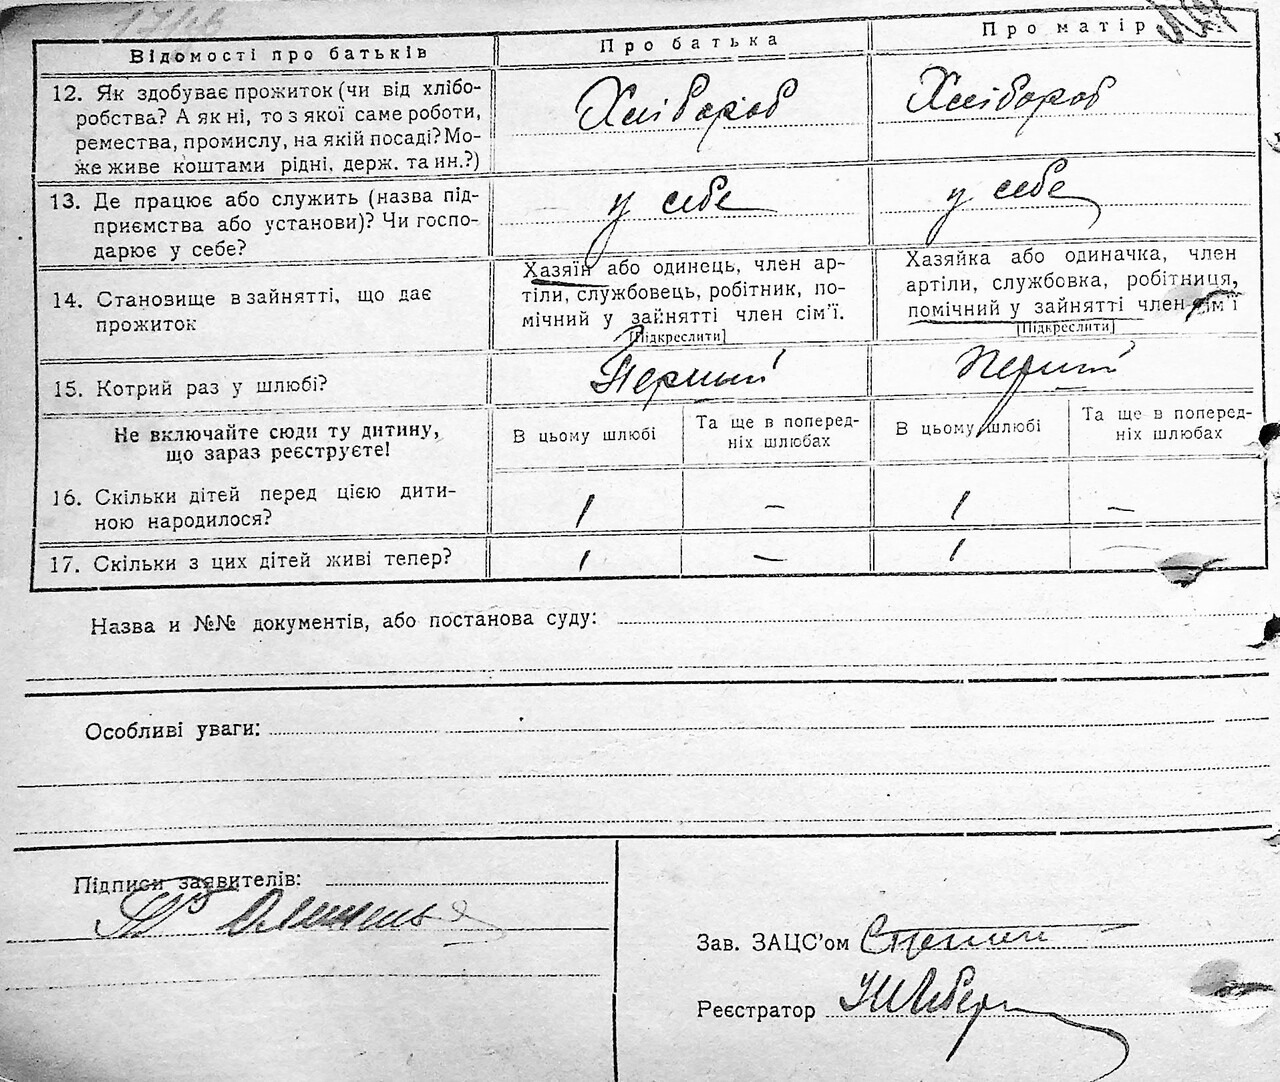 Відомості про батьків
Про батька
Про матір
12. Як здобуває прожиток (чи від хлібо-
робства? А як ні, то з якої саме роботи,
ремества, промислу, на якій посаді? Мо-
же живе коштами рідні, держ. та ин.?)
Хлібороб
Хлібороб
13. Де працює або служить (назва під-
приємства або установи)? Чи госпо-
дарює у себе?
у себе
у себе
14. Становище в зайнятті, що дає
прожиток
Хазяїн або одинець, член ар-
тіли, службовець, робітник, по-
мічний у зайнятті член сім'ї.
[Підкреслити]
Хазяйка або одиначка, член
артіли, службовка, робітниця,
помічний у зайнятті член сім'ї
[Підкреслити]
15. Котрий раз у шлюбі?
Перший
Перший
Не включайте сюди ту дитину,
що зараз реєструєте!
В цьому шлюбі
Та ще в поперед-
ніх шлюбах
В цьому шлюбі
Та ще в поперед-
ніх шлюбах
16. Скільки дітей перед цією дити-
ною народилося?
1 – 1 –
17. Скільки з цих дітей живі тепер?
1 – 1 –
Назва и №№ документів, або постанова суду:
Особливі уваги:
Підписи заявителів:
Зав. ЗАЦС'ом
Реєстратор